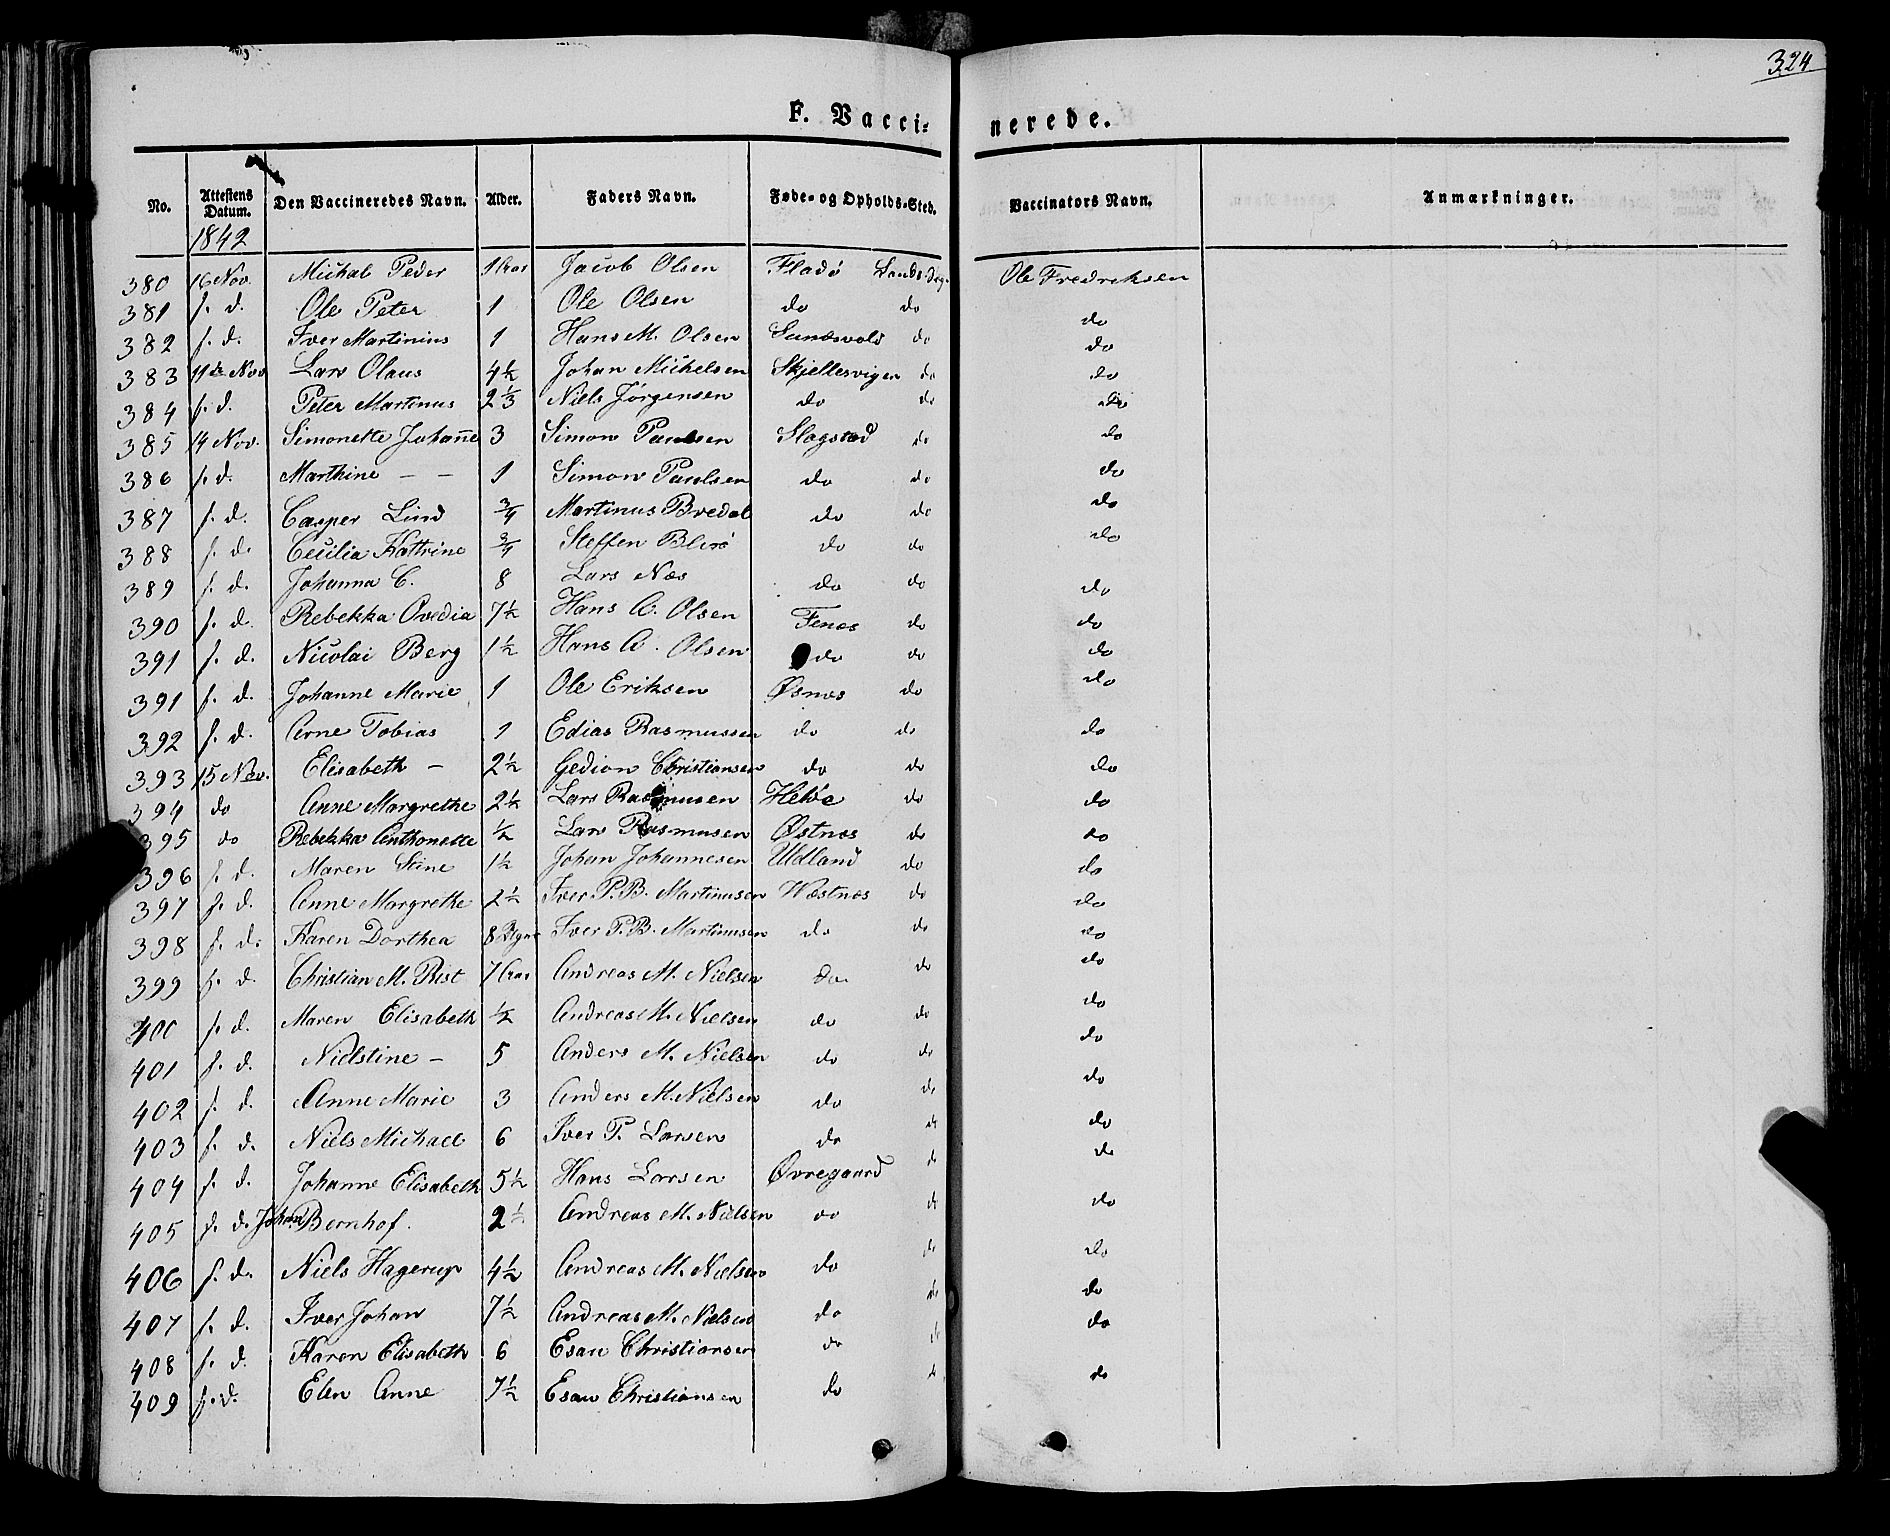 324
F. Vacci= nerede.
No. Attestens Datum. Den Vaccineredes Navn. Alder. Faders Navn. Føde- og Opholds-Sted. Vaccinators Navn. Anmærkninger.
1842
380 16 Nov. Michal Peder 1 Aar Jacob Olsen Fladø Ole Fredriksen
381 s. d. Ole Peter 1 Ole Olsen do do do
382 s. d. Iver Martinius 1 Hans M. Olsen Sundsvold do do
383 11te Nov Lars Olaus 4½ Johan Michelsen Skjellesvigen do do
384 s. d. Peter Martinus 2⅓ Niels Jørgensen do do do
385 14 Nov. Simonette Johanne 3 Simon Paulsen Slagstad do do
386 s. d. Marthine — — 1 Simon Paulsen do do do
387 s. d. Casper Lind ¾ Martinus Bredal do do do
388 s. d. Cecilia Kattrine ¾ Steffen Blisø do do do
389 s. d. Johanna C. 8 Lars Næs do do do
390 s. d. Rebekka Ovedia 7½ Hans A. Olsen Fenes do do
391 s. d. Nicolai Berg 1½ Hans A. Olsen do do do
391 s. d. Johanne Marie 1 Ole Eriksen Øsnes do do
392 s. d. Arne Tobias 1 Edias Rasmussen do do do
393 15 Nov. Elisabeth — 2½ Gedion Christiansen do do do
394 do Anne Margrethe 2½ Lars Rasmusen do do
395 do Rebekka Anthonette ½ Lars Rasmusen Østnes do do
396 s. d. Maren Stine 1½ Johan Johannesen Udland do do
397 s. d. Anne Margrethe 2½ Iver P. B. Martinusen Wæstnes do do
398 s. d. Karen Dorthea 8 Iver P. B. Martinusen do do do
399 s. d. Christian M. Rist 7 Aar Andreas M. Nielsen do. do do
400 s. d. Maren Elisabeth ½ Andreas M. Nielsen do do do
401 s. d. Nielstine — 5 Anders M. Nielsen do do do
402 s. d. Anne Marie 3 Anders M. Nielsen do do do
403 s. d. Niels Michael 6 Iver P. Larsen do do do
404 s. d. Johanne Elisabeth 5½ Hans Larsen Øvregaard do do
405 s. d. Johan Bernhof. 2½ Andreas M. Nielsen do do do
406 s. d. Niels Hagerup 4½ Andreas M. Nielsen do do do
407 s. d. Iver Johan 7½ Andreas M. Nielsen do do do
408 s. d. Karen Elisabeth 6 Esau Christiansen do do do
409 s. d. Elen Anne 7½ Esau Christiansen do do do